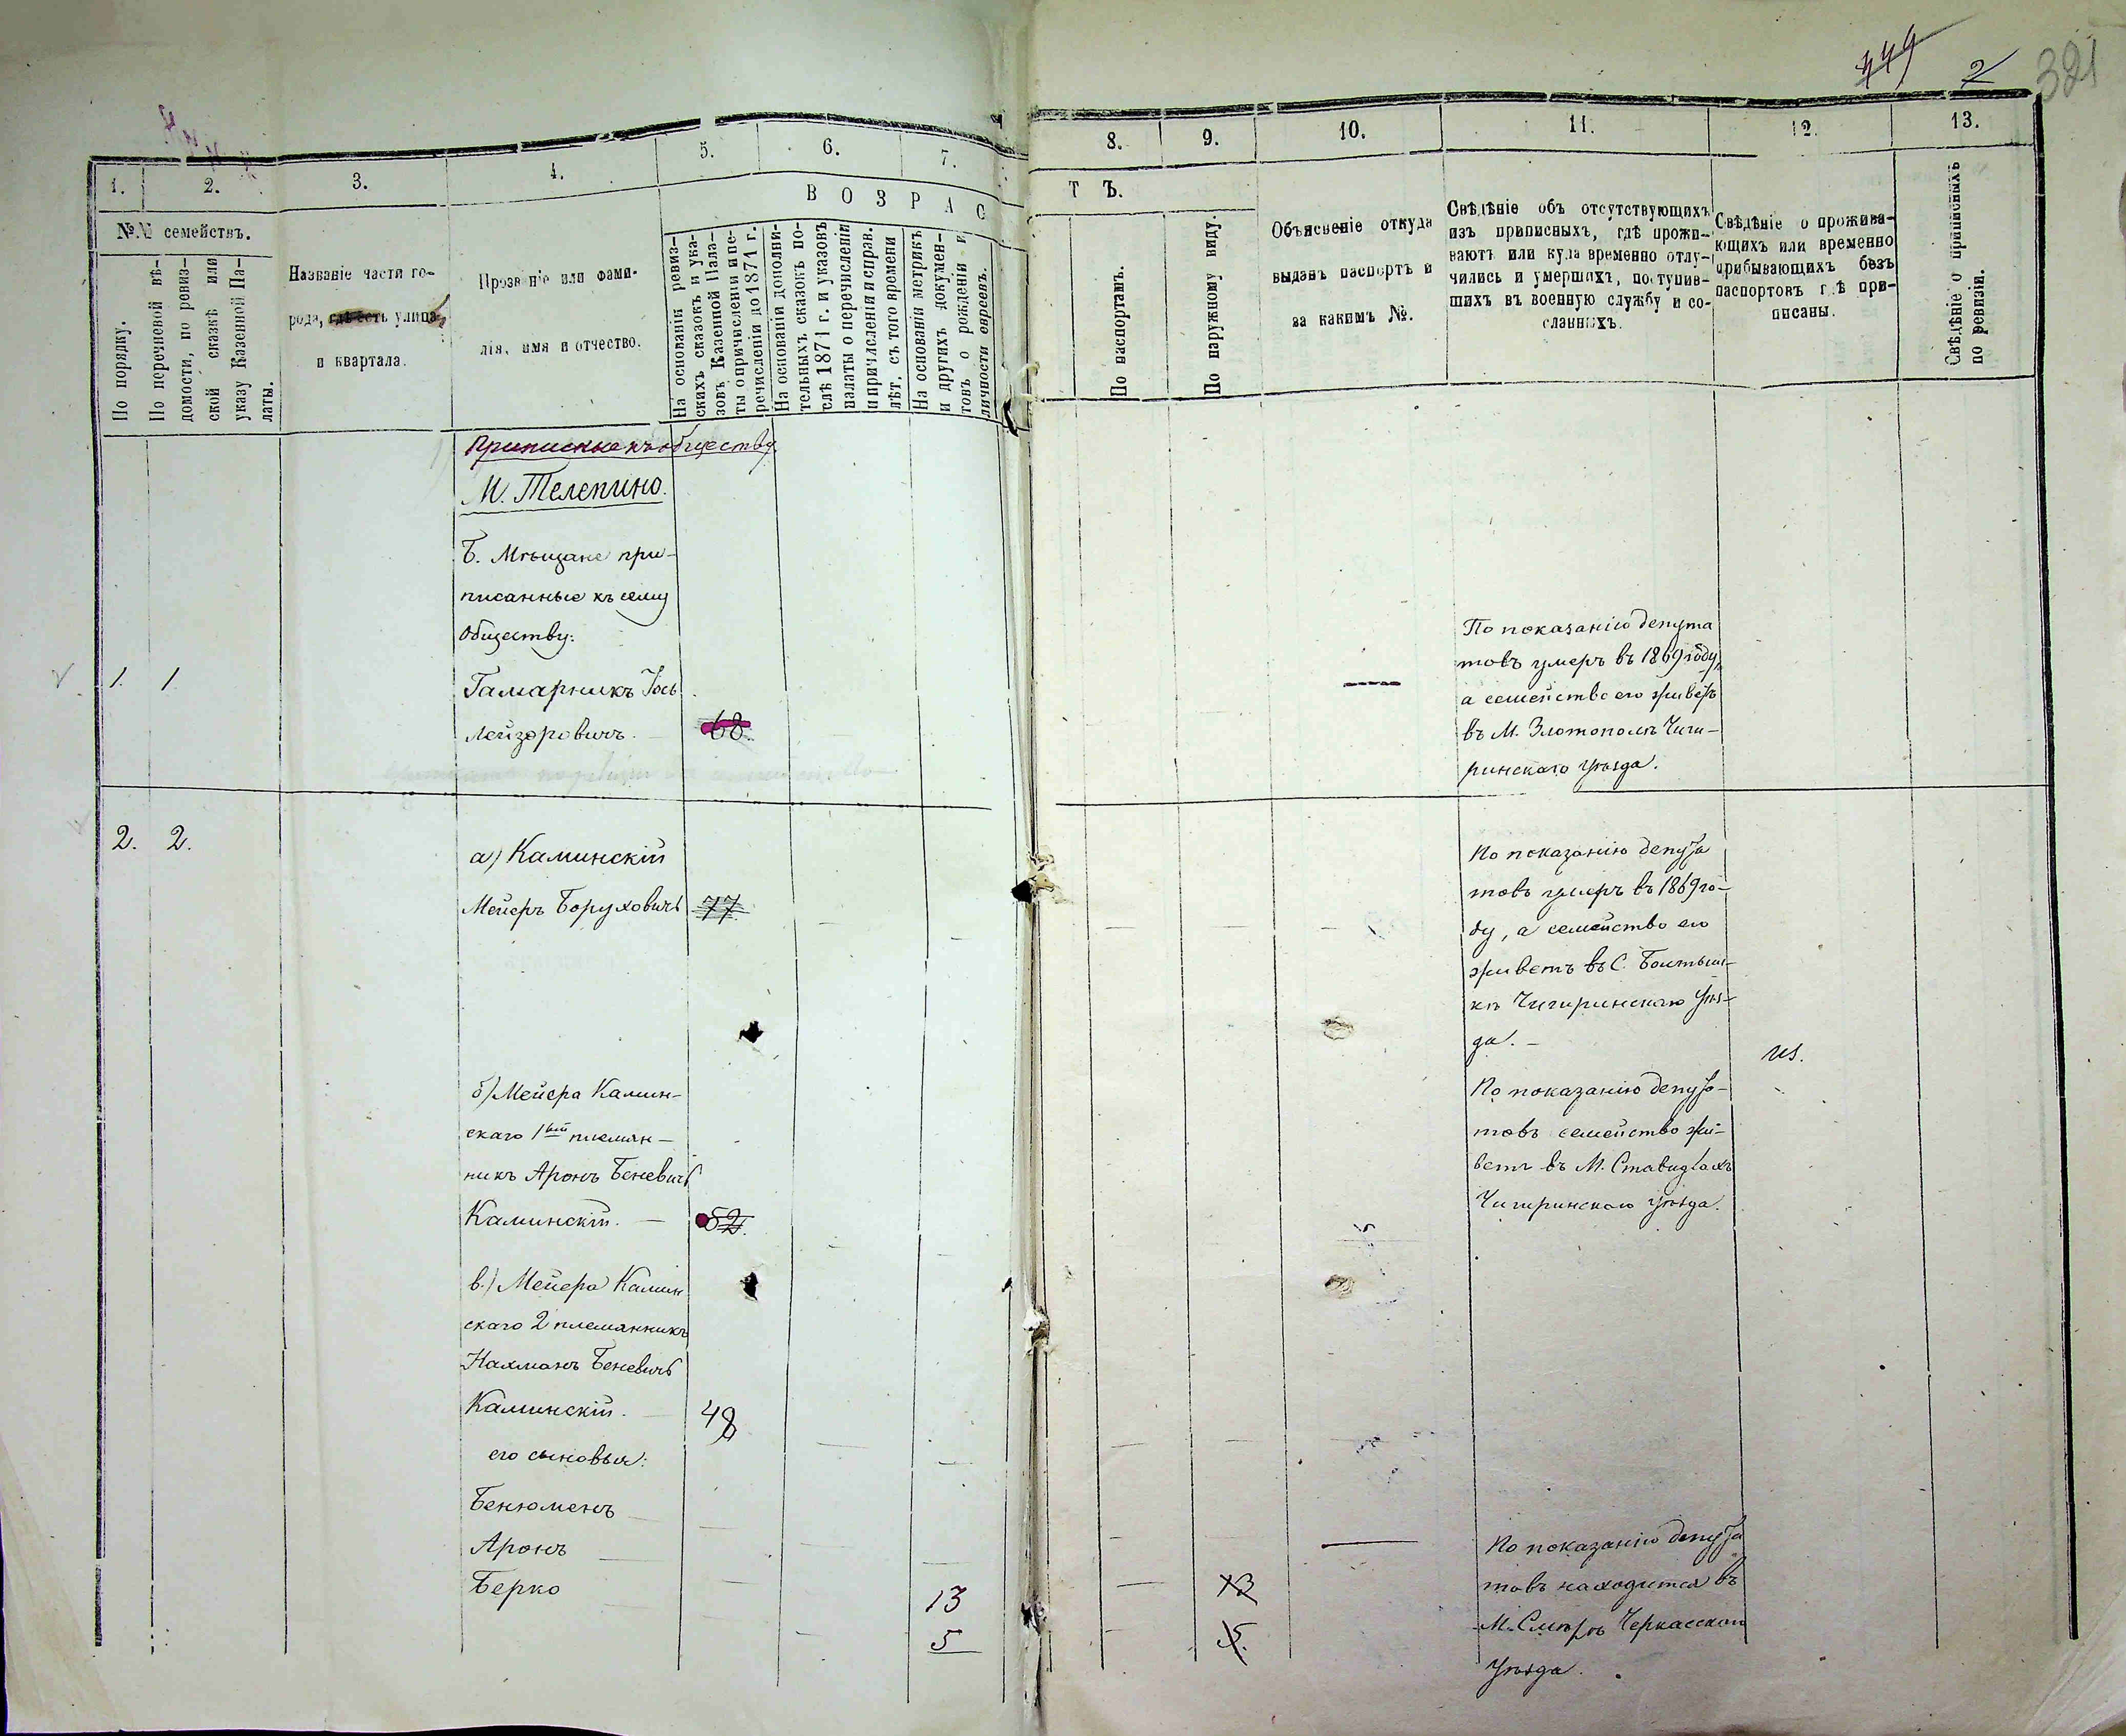 449 2 321
1. 2. 3. 4. 5. 6. 7. 8. 9. 10. 11. 12. 13.
№№ семействъ.
По порядку.
По перечневой вѣ-
домости, по ревиз-
ской сказкѣ или
указу Казенной Па-
латы.
Названіе части го-
рода, гдѣ есть улица
и квартала.
Прозваніе или фами-
лія, имя и отчество.
ВОЗРАСТЪ.
На основаніи ревиз-
скихъ сказокъ и ука-
зовъ Казенной Пала-
ты о причисленіи и пе-
речисленіи до 1871 г.
На основаніи дополни-
тельныхъ сказокъ по-
слѣ 1871 г. и указовъ
палаты о перечисленіи
и причисленіи и справ.
лѣт. съ того времени
На основаніи метрикъ
и другихъ докумен-
товъ о рожденіи и
личности евреевъ.
По паспортамъ.
По наружному виду.
Объясненіе откуда
выданъ паспортъ и
за какимъ №.
Свѣдѣніе объ отсутствующихъ
изъ приписныхъ, гдѣ прожи-
ваютъ или куда временно отлу-
чились и умершихъ, поступив-
шихъ въ военную службу и со-
сланныхъ.
Свѣдѣніе о прожива-
ющихъ или временно
прибывающихъ безъ
паспортовъ гдѣ при-
писаны.
Свѣдѣніе о приписныхъ
по ревизіи.
Приписные къ обществу
М. Телепино.
Б. Мѣщане при-
писанные къ сему
обществу:
1. 1
Гамарникъ Іось
Лейзоровичъ. 68.
По показанію депута
товъ умеръ въ 1869 году,
а семейство его живетъ
въ М. Златополѣ Чиги-
ринскаго уѣзда.
2. 2.
а) Каминскій
Мейеръ Боруховичъ 77
По показанію депута
товъ умеръ въ 1869 го-
ду, а семейство его
живетъ въ С. Болтыш-
кѣ Чигиринскаго уѣз-
да. –
б) Мейера Камин-
скаго 1ый племян-
никъ Аронъ Беневичъ
Каминскій. — 52.
По показанію депута-
товъ семейство жи-
ветъ въ М. Ставидлахъ
Чигиринскаго уѣзда.
в.) Мейера Камин
скаго 2 племянникъ
Нахманъ Беневичъ
Каминскій. 48
его сыновья:
Бенюменъ
Аронъ
Берко
13 13
5 5.
По показанію депута
товъ находится въ
М. Смѣлѣ Черкасскаго
уѣзда.